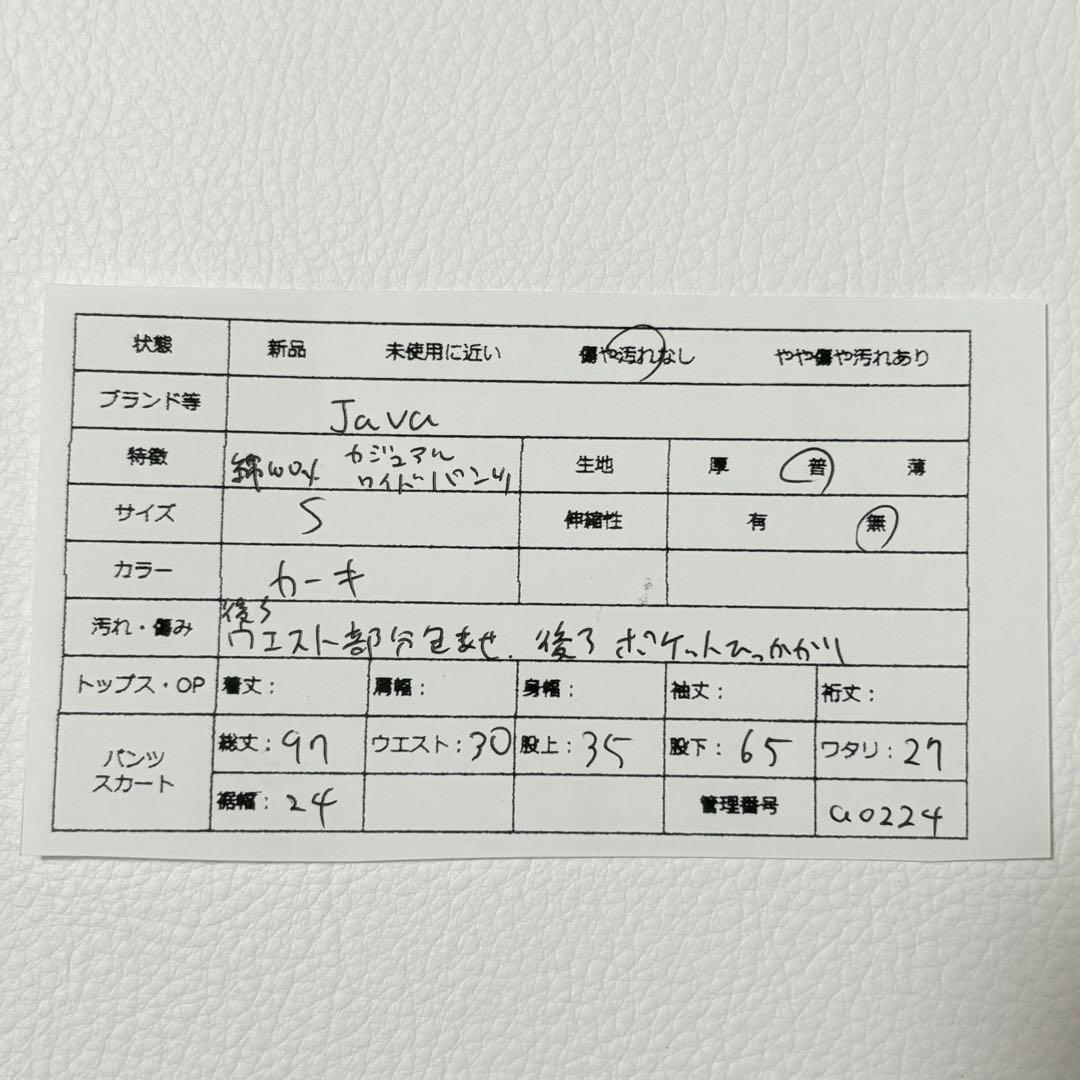 状態 新品 未使用に近い 傷や汚れなし やや傷や汚れあり
ブランド等 Java
特徴 綿100% カジュアル ワイドパンツ 生地 厚 普 薄
サイズ S 伸縮性 有 無
カラー カーキ
汚れ・傷み 後ろ ウエスト部分色あせ、後ろポケットひっかかり
トップス・OP 着丈: 肩幅: 身幅: 袖丈: 裄丈:
パンツ スカート 総丈:97 ウエスト:30 股上:35 股下:65 ワタリ:27
裾幅:24 管理番号 a0224